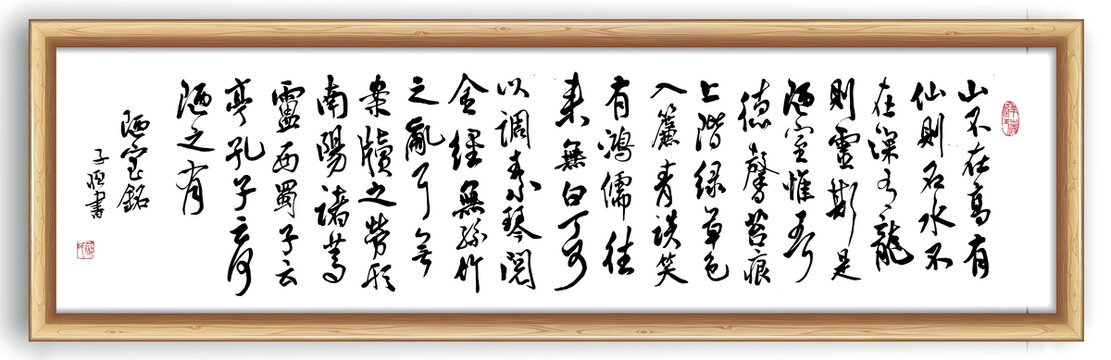 山不在高有
仙則名水不
在深有龍
則靈斯是
陋室惟吾
德馨苔痕
上階綠草色
入簾青談笑
有鴻儒往
來無白丁可
以調素琴閱
金經無絲竹
之亂耳無
案牘之勞形
南陽諸葛
廬西蜀子云
亭孔子云何
陋之有
陋室銘
子書